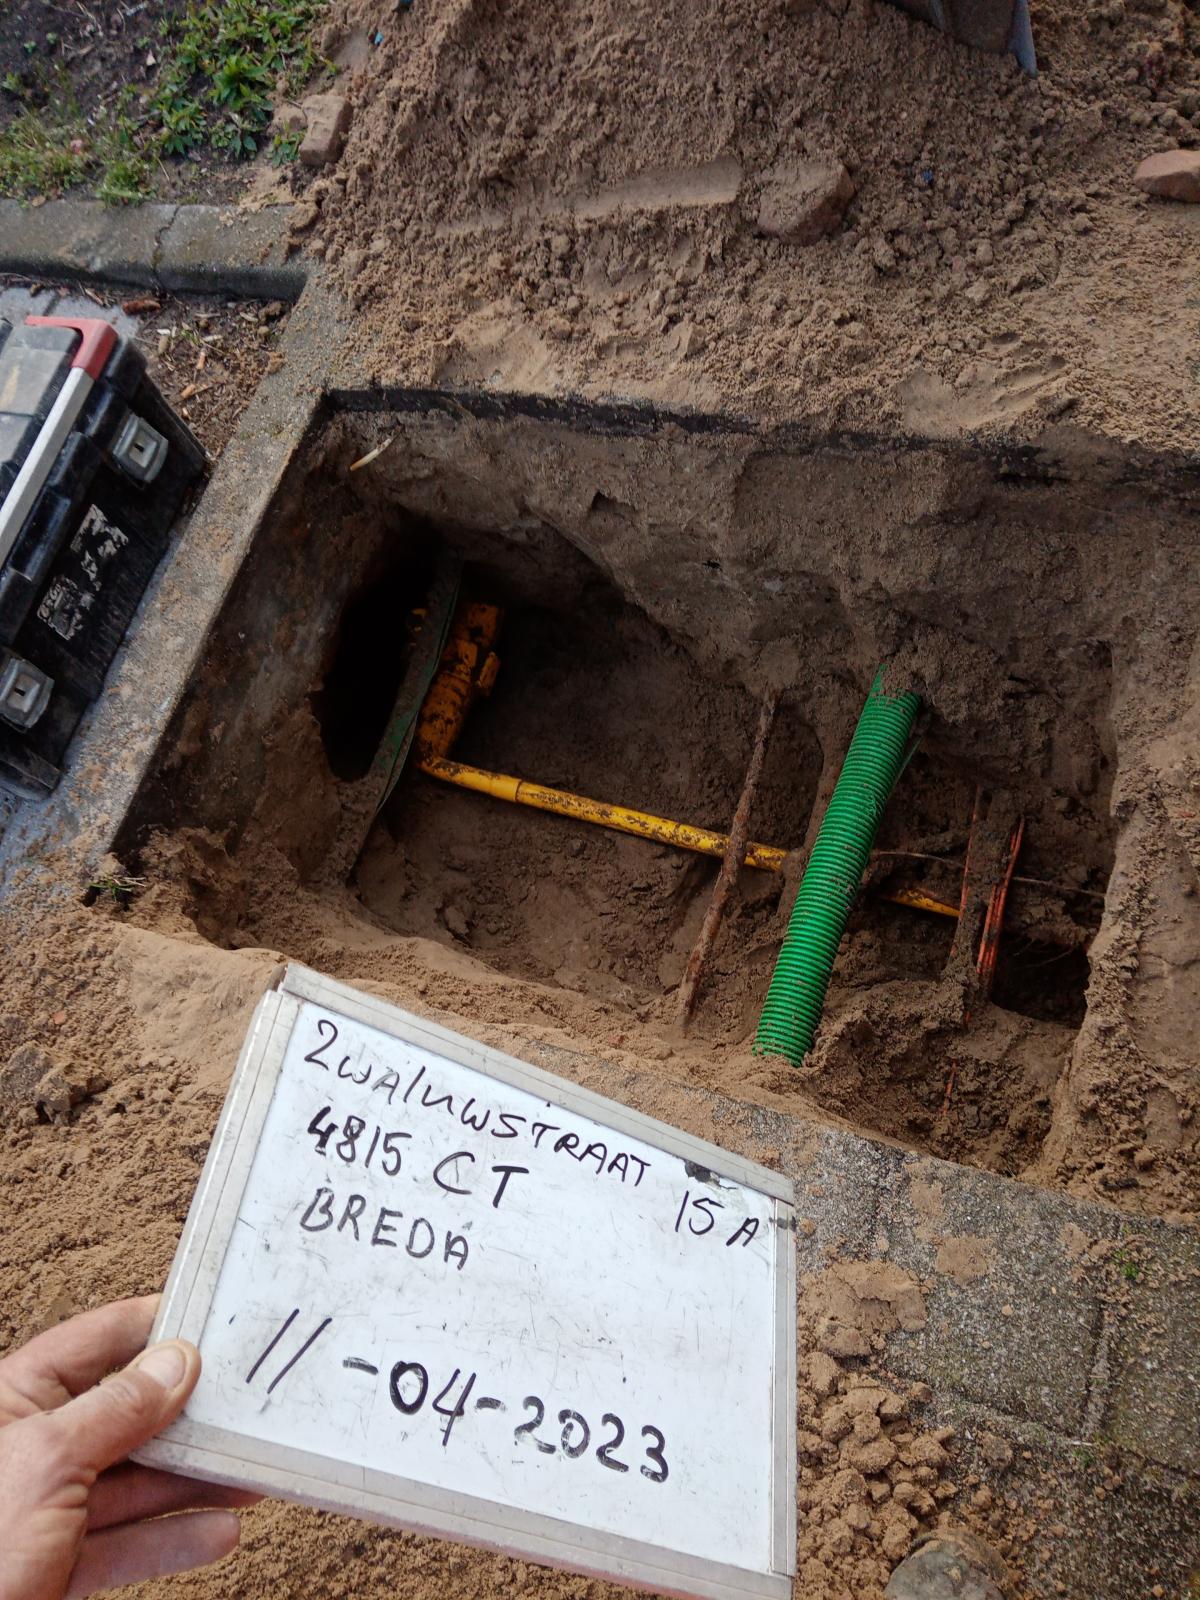 ZWALUWSTRAAT 15 A
4815 CT
BREDA
11-04-2023